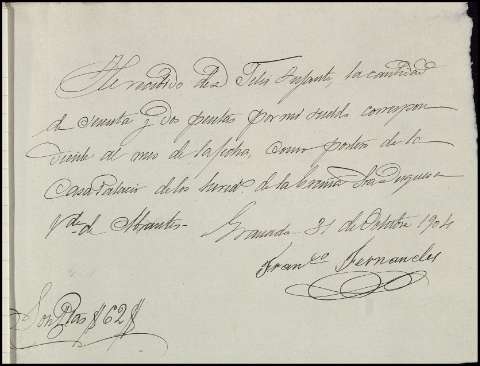 He recibido de D Felix Infante la cantidad
de sesenta y dos pesetas por mi sueldo correspon
diente al mes de la fecha, como portero de la
Casa Palacio de los hered. de la Excma Sra Duquesa
Vda de Abrantes.
Granada 31 de Octubre 1904
Franco Fernandez
Son Ptas $ 62 $